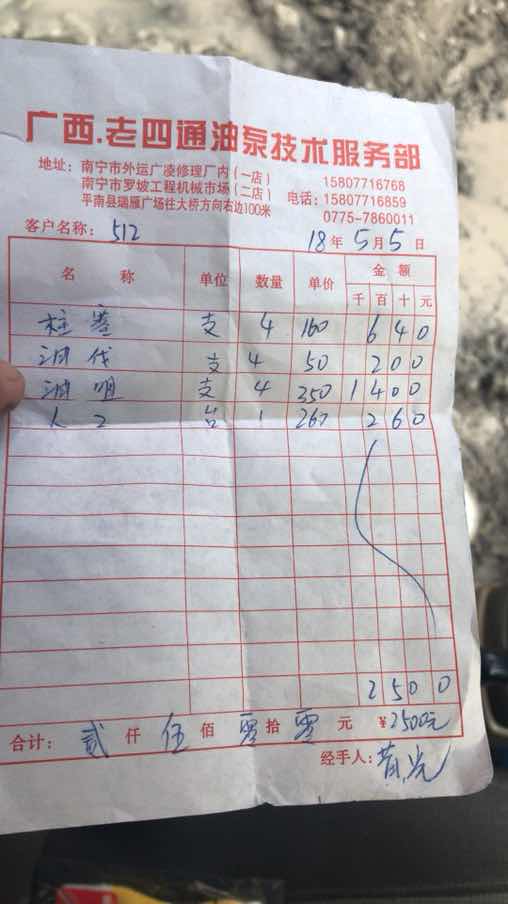 广西.老四通油泵技术服务部
地址：南宁市外运广凌修理厂内（一店） 15807716768
南宁市罗坡工程机械市场（二店） 电话：15807716859
平南县瑞雁广场往大桥方向右边100米 0775-7860011
客户名称：512 18年5月5日
名称 单位 数量 单价 金额
千 百 十 元
柱塞 支 4 160 640
油伐 支 4 50 200
油咀 支 4 350 1400
人工 台 1 260 260
2500
合计：贰仟伍佰零拾零元 ¥2500元
经手人：